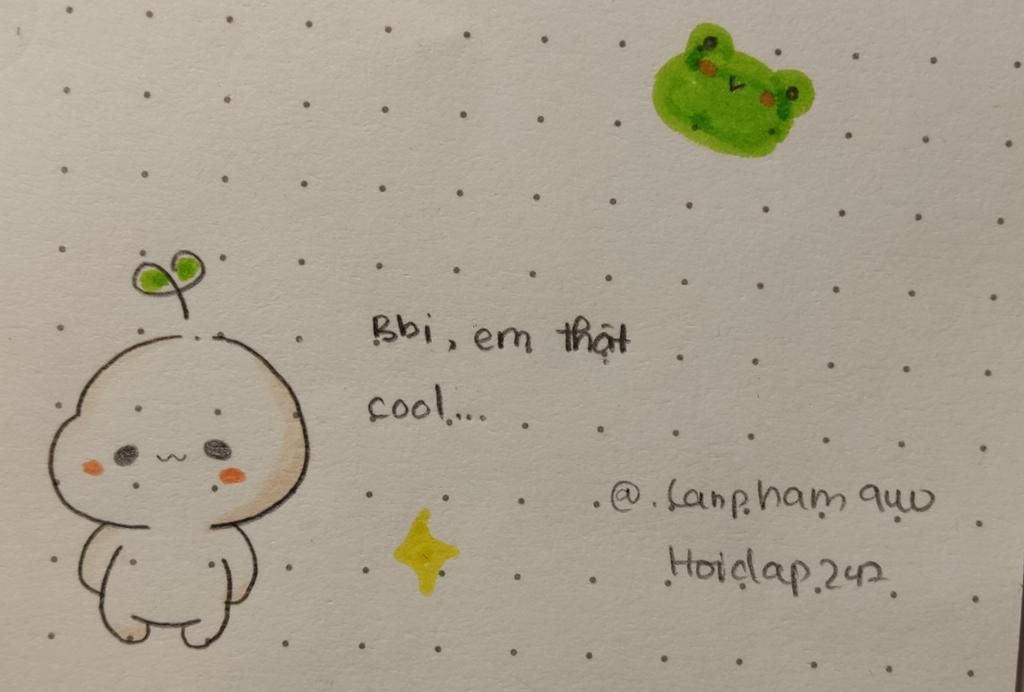 Bbi, em thật
cool...
@.Lanpham quo
Hoidap247